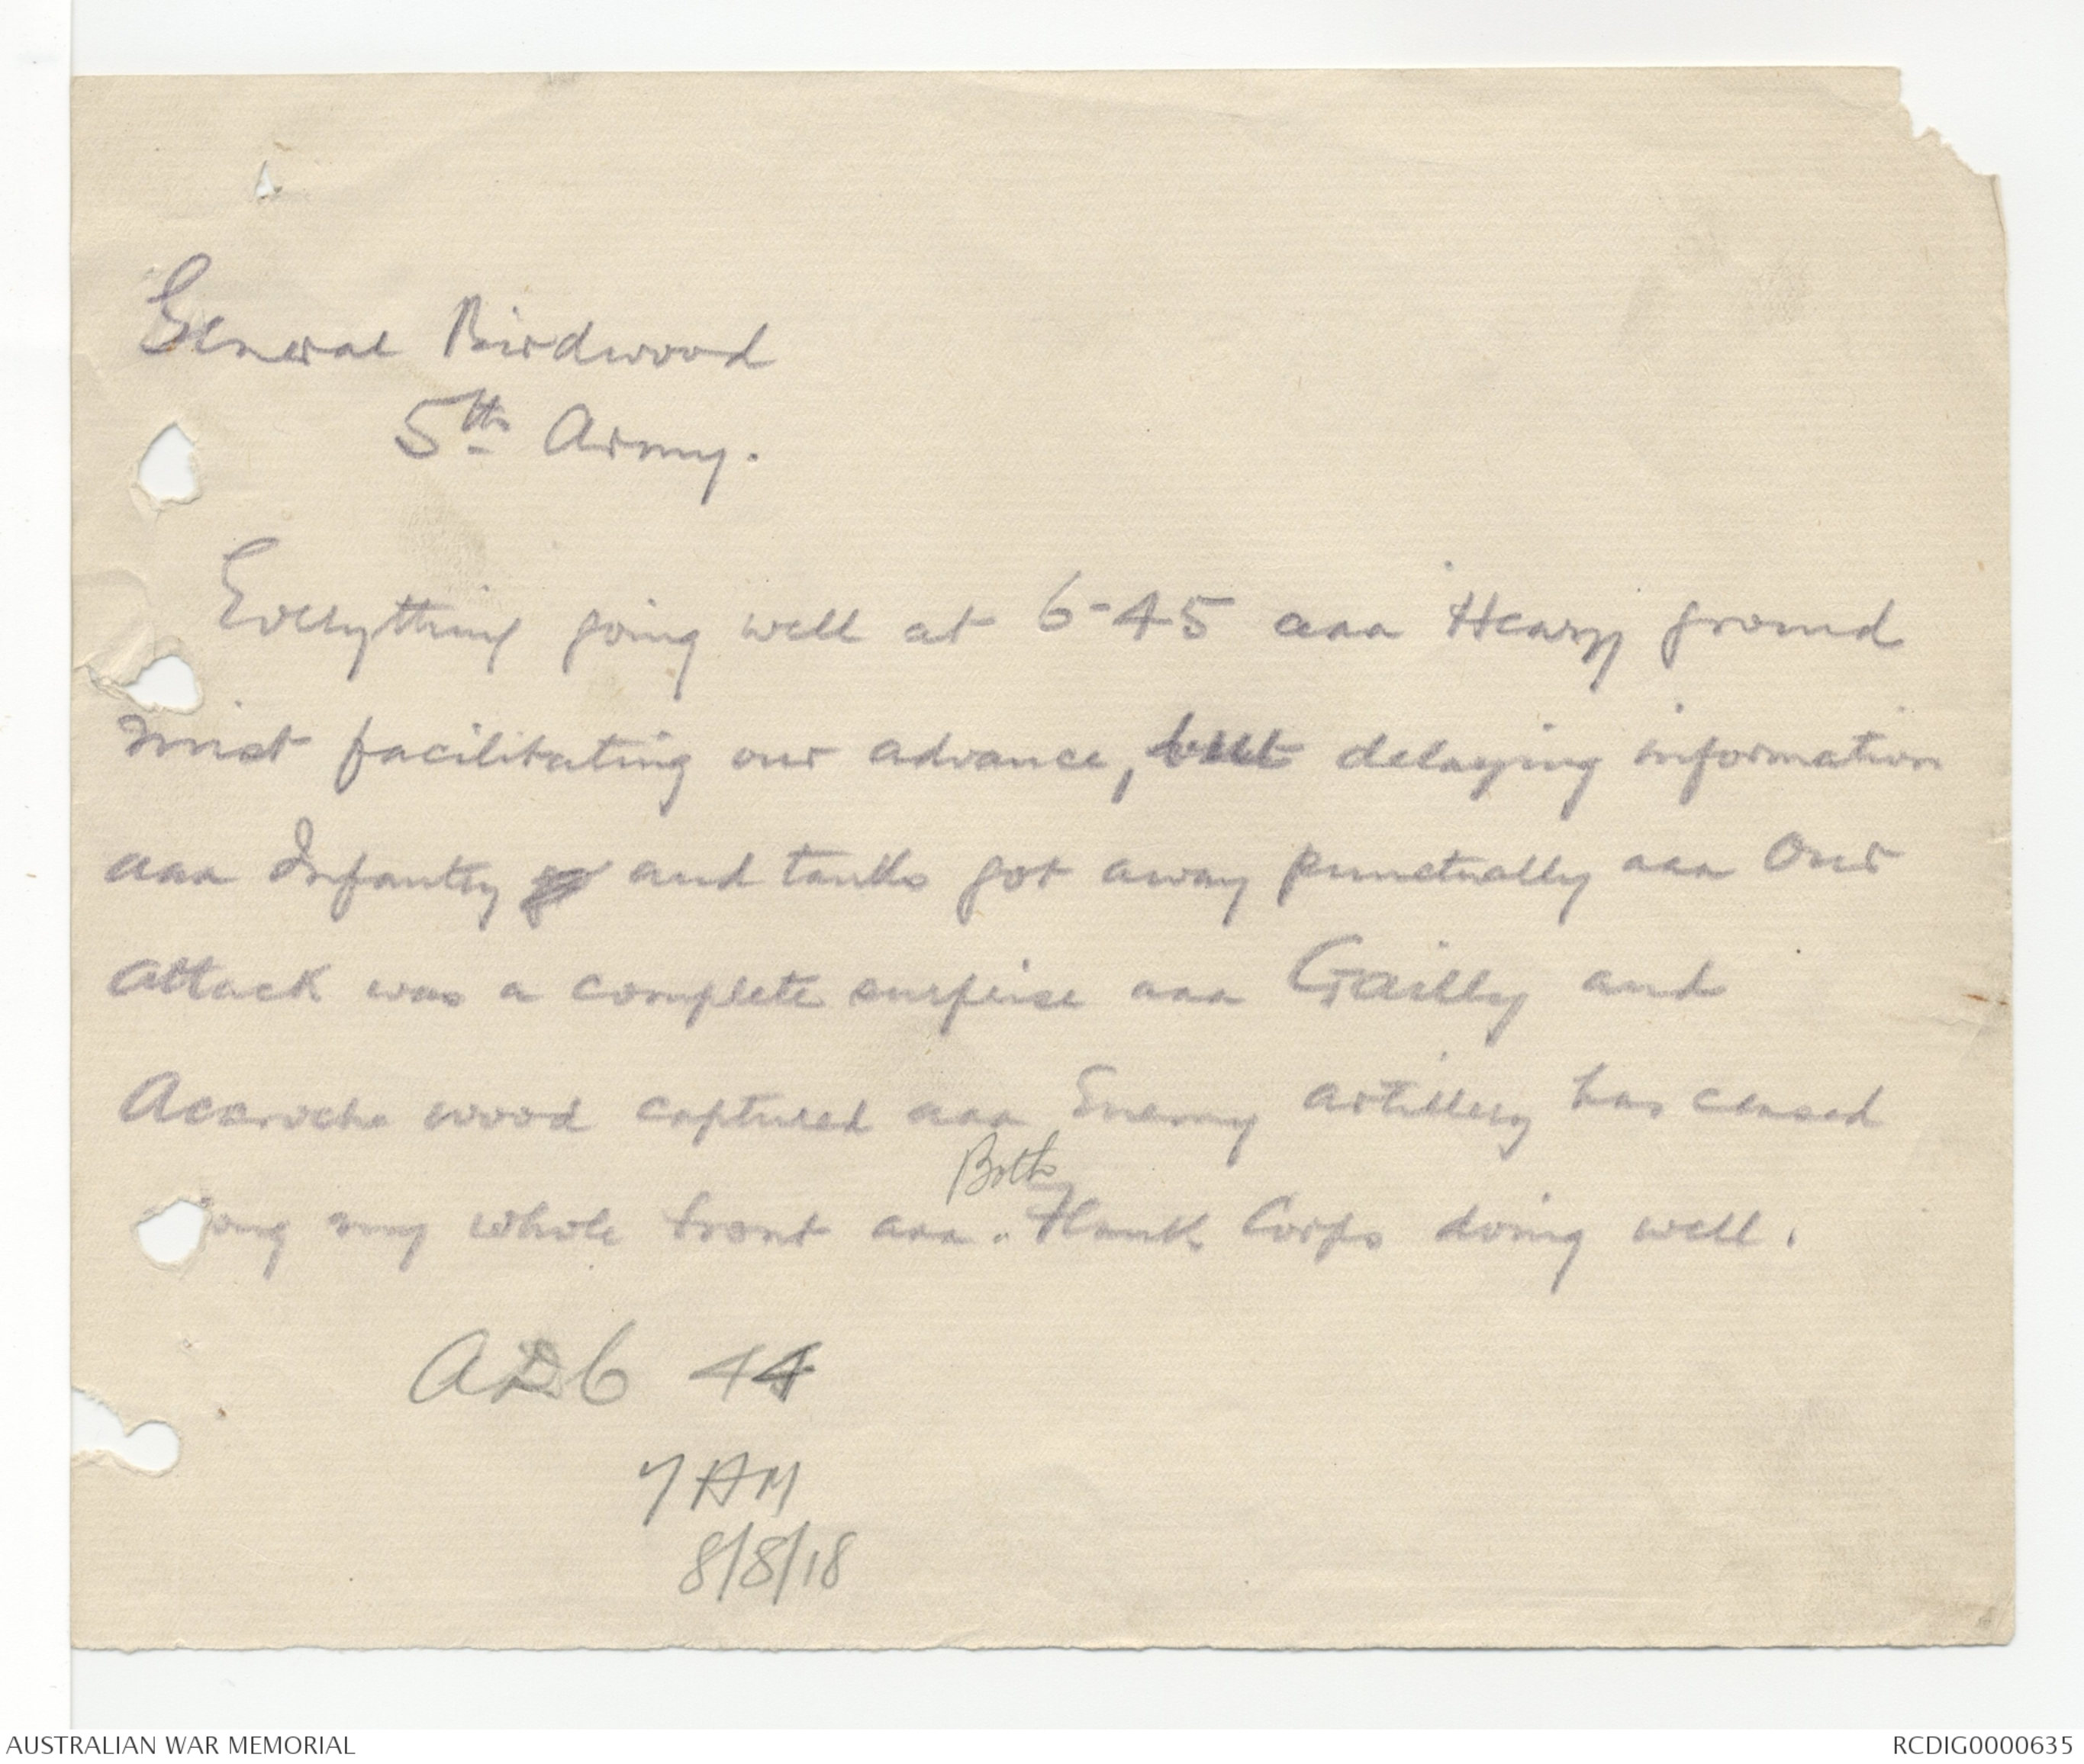 General Birdwood
5th Army.
Everything going well at 6-45 aaa Heavy ground
mist facilitating our advance, but delaying information
aaa Infantry and tanks got away punctually aaa Our
attack was a complete surprise aaa Gailly and
Accroche wood captured aaa Enemy artillery has ceased
ong my whole front aaa. Both Flank Corps doing well.
44
7 AM
8/8/18
AUSTRALIAN WAR MEMORIAL
RCDIG0000635